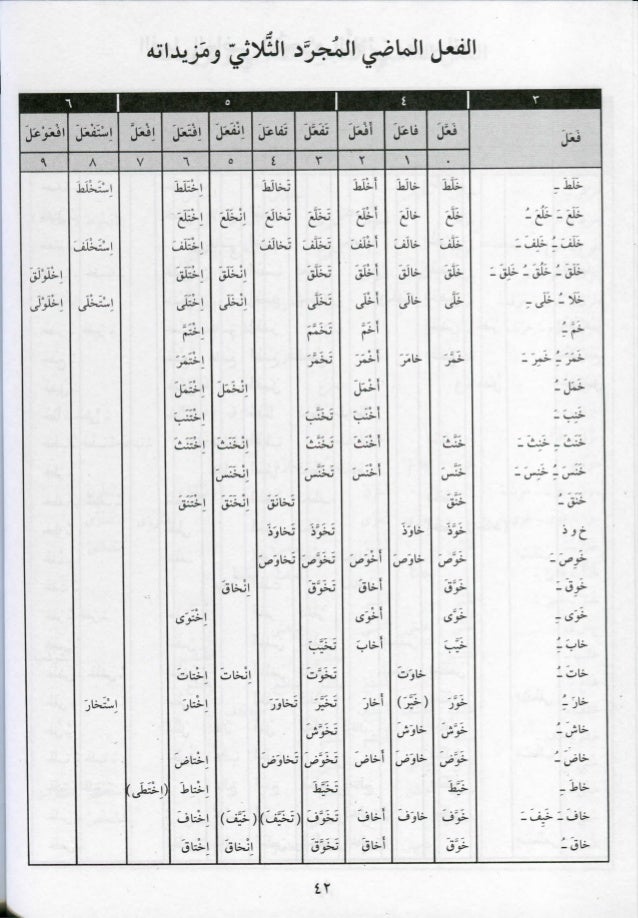 الفعل الماضي المُجرَّد الثُّلاثيّ ومَزيداته
٣ ٤ ٥ ٦
فَعَلَ فَعَّلَ فاعَلَ أَفْعَلَ تَفَعَّلَ تَفاعَلَ اِنْفَعَلَ اِفْتَعَلَ اِفْعَلَّ اِسْتَفْعَلَ اِفْعَوْعَلَ
٠ ١ ٢ ٣ ٤ ٥ ٦ ٧ ٨ ٩
خَلَطَ ـِ خَلَّطَ خالَطَ أَخْلَطَ تَخالَطَ اِخْتَلَطَ اِسْتَخْلَطَ
خَلَعَ ـَ خَلُعَ ـُ خَلَّعَ خالَعَ أَخْلَعَ تَخَلَّعَ تَخالَعَ اِنْخَلَعَ اِخْتَلَعَ
خَلَفَ ـُ خَلِفَ ـَ خَلَّفَ خالَفَ أَخْلَفَ تَخَلَّفَ تَخالَفَ اِخْتَلَفَ اِسْتَخْلَفَ
خَلَقَ ـُ خَلُقَ ـُ خَلِقَ ـَ خَلَّقَ خالَقَ أَخْلَقَ تَخَلَّقَ اِنْخَلَقَ اِخْتَلَقَ اِخْلَوْلَقَ
خَلا ـُ خَلَى ـِ خَلَّى خالَى أَخْلَى تَخَلَّى اِنْخَلَى اِخْتَلَى اِسْتَخْلَى اِخْلَوْلَى
خَمَّ ـُ أَخَمَّ تَخَمَّمَ اِخْتَمَّ
خَمَرَ ـُ خَمِرَ ـَ خَمَّرَ خامَرَ أَخْمَرَ تَخَمَّرَ اِخْتَمَرَ
خَمَلَ ـُ أَخْمَلَ اِنْخَمَلَ اِخْتَمَلَ
خَنِبَ ـَ أَخْنَبَ تَخَنَّبَ اِخْتَنَبَ
خَنَثَ ـِ خَنِثَ ـَ خَنَّثَ أَخْنَثَ تَخَنَّثَ اِنْخَنَثَ اِخْتَنَثَ
خَنَسَ ـُ خَنِسَ ـَ خَنَّسَ أَخْنَسَ تَخَنَّسَ اِنْخَنَسَ
خَنَقَ ـُ خَنَّقَ تَخانَقَ اِنْخَنَقَ اِخْتَنَقَ
خ و ذ خَوَّذَ خاوَذَ تَخَوَّذَ تَخاوَذَ
خَوِصَ ـَ خَوَّصَ خاوَصَ أَخْوَصَ تَخَوَّصَ تَخاوَصَ
خَوِقَ ـَ خَوَّقَ أَخاقَ تَخَوَّقَ اِنْخاقَ
خَوَى ـِ خَوَّى أَخْوَى اِخْتَوَى
خابَ ـِ خَيَّبَ أَخابَ تَخَيَّبَ
خاتَ ـُ خاوَتَ تَخَوَّتَ اِنْخاتَ اِخْتاتَ
خارَ ـُ خَوَّرَ (خَيَّرَ) أَخارَ تَخَيَّرَ تَخاوَرَ اِخْتارَ اِسْتَخارَ
خاشَ ـُ خَوَّشَ خاوَشَ تَخَوَّشَ
خاضَ ـُ خَوَّضَ خاوَضَ أَخاضَ تَخَوَّضَ تَخاوَضَ اِخْتاضَ
خاطَ ـِ خَيَّطَ تَخَيَّطَ اِخْتاطَ (اِخْتَطَى)
خافَ ـَ خَيِفَ ـَ خَوَّفَ خاوَفَ أَخافَ تَخَوَّفَ (تَخَيَّفَ) (خَيَّفَ) اِخْتافَ
خاقَ ـُ خَوَّقَ أَخاقَ تَخَوَّقَ اِنْخاقَ اِخْتاقَ
٤٢